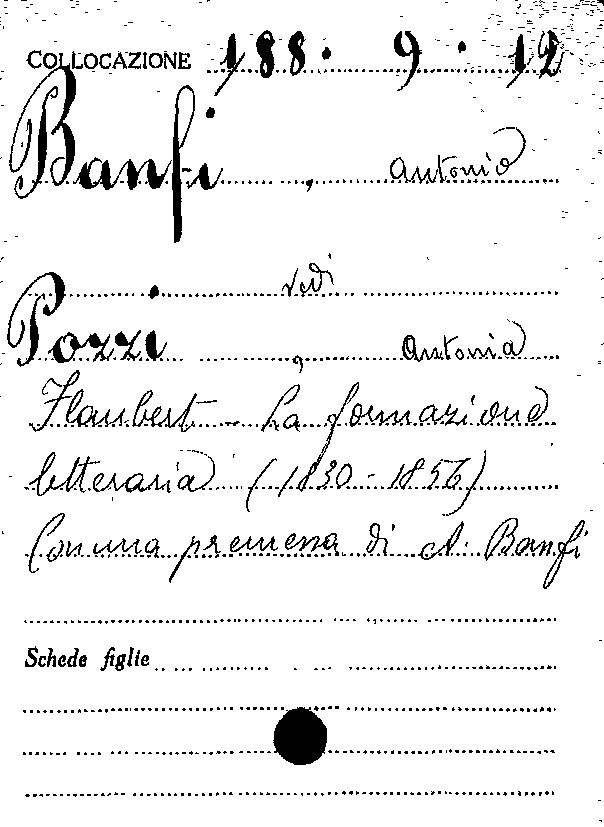 COLLOCAZIONE 188. 9. 12
Banfi, Antonio
vedi
Pozzi, Antonia
Flaubert - La formazione
letteraria (1830-1856)
Con una premessa di A. Banfi
Schede figlie